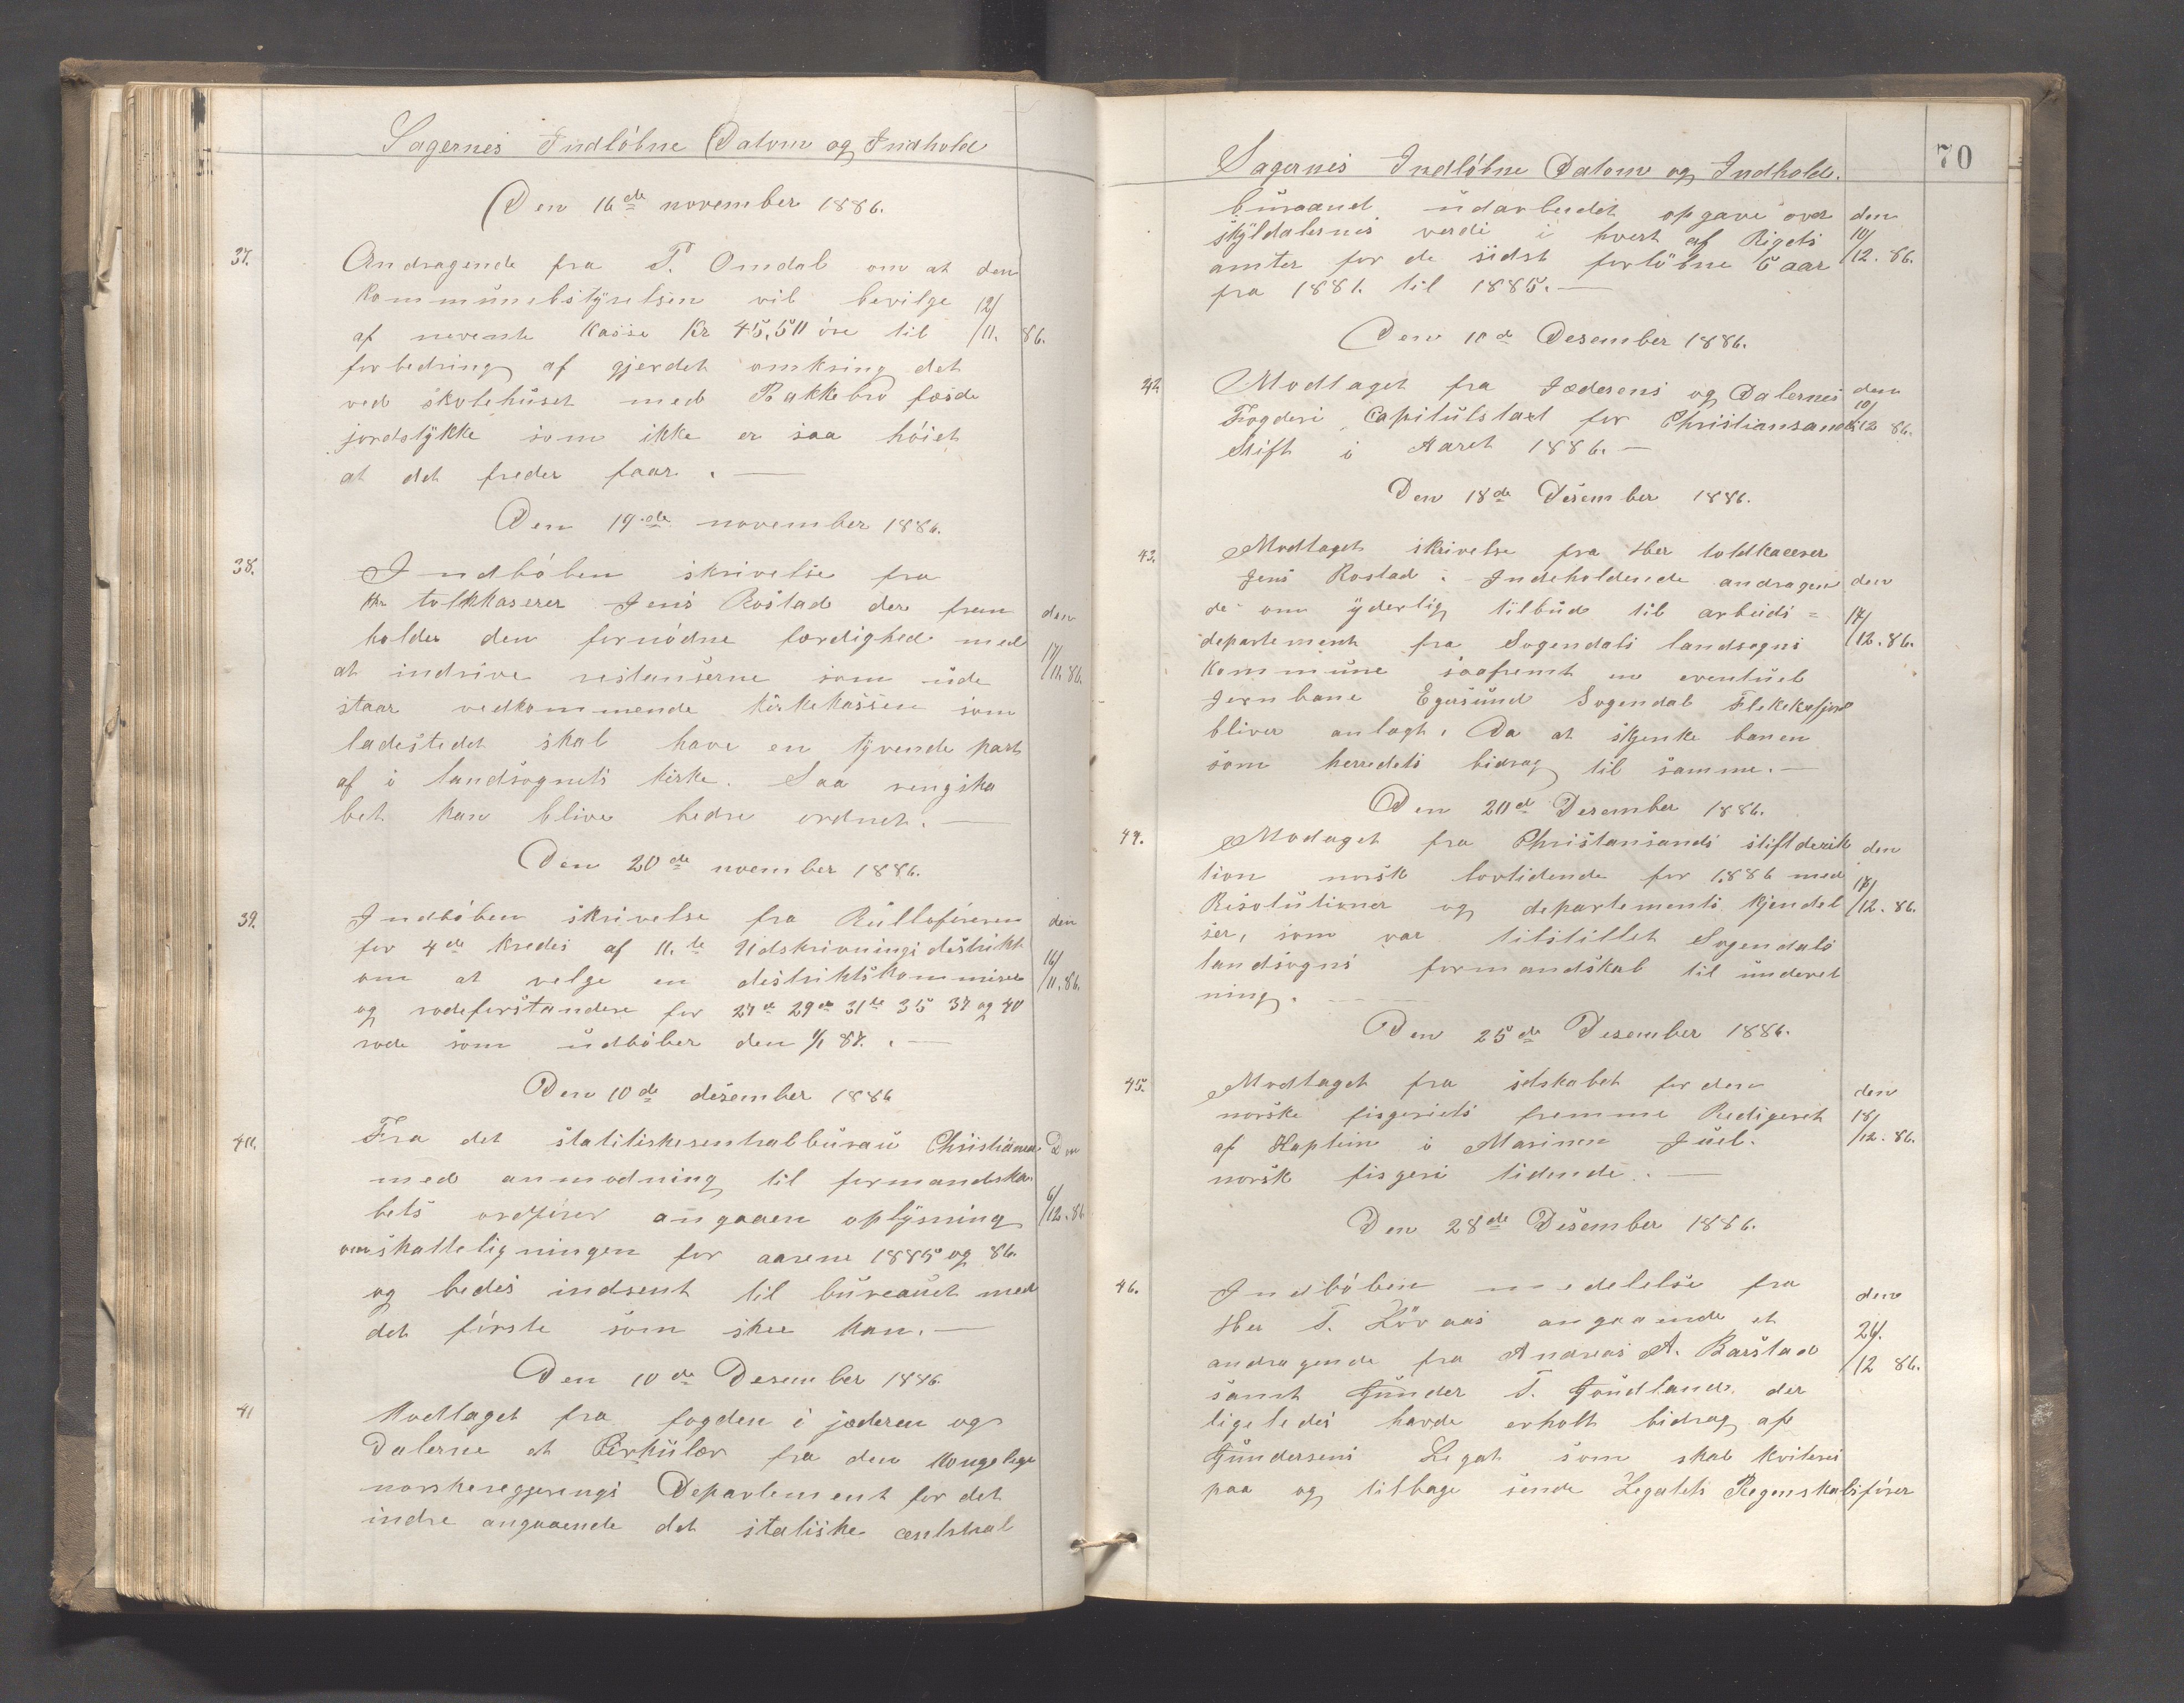 Sagernes Indlöbne Datom og Indhold
Den 16de november 1886.
37. Andragende fra T. Omdal om at den
kommunebstyrelsen vil bevilge 12/
af neveente kasse Kr 45,50 öre til /11. 86.
forbedring af gjerdet omkring det
ved skolehuset med Bakkebro fæsde
jordstykke som ikke er saa höiet
at det freder faar. —
Den 19.de november 1886.
38. Indböben skrivelse fra
Hr tolkkaserer Jens Rostad der frem den
holder den fornödne færdighed med 17/
at indrive restanserne som ude /11. 86.
staar vedkommende kirkekassen som
ladestedet skal have en tyvende part
af i landsognets kirke. Saa rengska
bet kan blive bedre ordnet. —
Den 20de november 1886.
39. Indböben skrivelse fra Rulloföreren den
for 4de kreds af 11.te Udskrivningsdestrikt 16/
om at velge en destriktskommiser /11. 86.
og rodeforstandere for 27de 29de 31te 35 37 og 40
rode som udböber den 1/1 87. —
Den 10de desember 1886
40. Fra det statitiskesentralbürau Christiania Den
med anmodning til formandska 6/
bets ordförer angaaen oplysning /12. 86
om skatteligningen for aarene 1885 og 86.
og bedes indsent til büreauet med
det förste som skee kan. —
Den 10de Desember 1886
41 Modtaget fra fogden i jæderen og
Dalerne et Cirkulær fra den kongelige
norskeregjerings Departement for det
indre angaaende det statiske centstral
70
Sagernes Indlöbne Datom og Indhold.
büraauet udarbeidet opgave over den
skyldalernes verdi i hvert af Rigets 10/
amter for de sidst forlöbne 5 aar /12. 86.
fra 1881. til 1885. —
Den 10de Desember 1886.
42. Modtaget fra Jæderens og Dalernes den
Fogderi Capitulstaxt for Christiansands 10/12 86.
Stift i Aaret 1886. —
Den 18de Desember 1886.
43. Modtaget skrivelse fra Her toldkacerer
Jens Rostad. Indeholdende andragen den
de om yderlig tilbud til arbeids= 17/
departement fra Sogendals landsogns /12. 86.
kommune saafremt en eventuel
Jernbane Egersund Sogendal Flekkefjord
bliver anlagt. Da at skjenke banen
som herredets bidrag til samme. —
Den 20de Desember 1886.
44. Modaget fra Christansands stiftderik den
tion norsk lovtidende for 1886 med 18/
Risolutioner og departements kjendel /12. 86.
ser, som var tilstillet Sogendals
landsogns formandskab til underet
ning.
Den 25de Desember 1886.
45. Modtaget fra sdskabet for den den
norske fisgeriets fremme Redigeret 18/
af Kaptein i Marinen Juel. /12. 86.
norsk fisgeri tidende. —
Den 28de Desember 1886.
46. Indböben medelelse fra den
Her T. Lövaas angaaende et 24/.
andragende fra Andreas A. Barstad /12 86.
samt Gunder T. Goudland. der
ligeledes havde erholt bidrag af
Gundersens Legat som skal kviteres
paa og tilbage sende Legatets Regenskabsförer